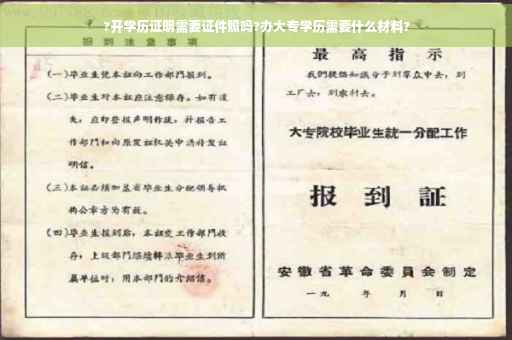 ?开学历证明需要证件照吗?办大专学历需要什么材料?
报到注意事项
(一)毕业生凭本证向工作部门报到。
(二)毕业生对本证应注意保存。如有遗
失,应即登报声明作废,并报告工
作部门和向原发证机关申请补发证
明信。
(三)本证必须加盖省毕业生分配领导机
构公章方为有效。
(四)毕业生报到后,本证交工作部门收
存;上级部门
属单位时,用本部门的介绍信。
最高指示
我们提倡知识分子到群众中去,到
工厂去,到农村去。
大专院校毕业生统一分配工作
报到证
安徽省革命委员会制定
一九 年 月 日